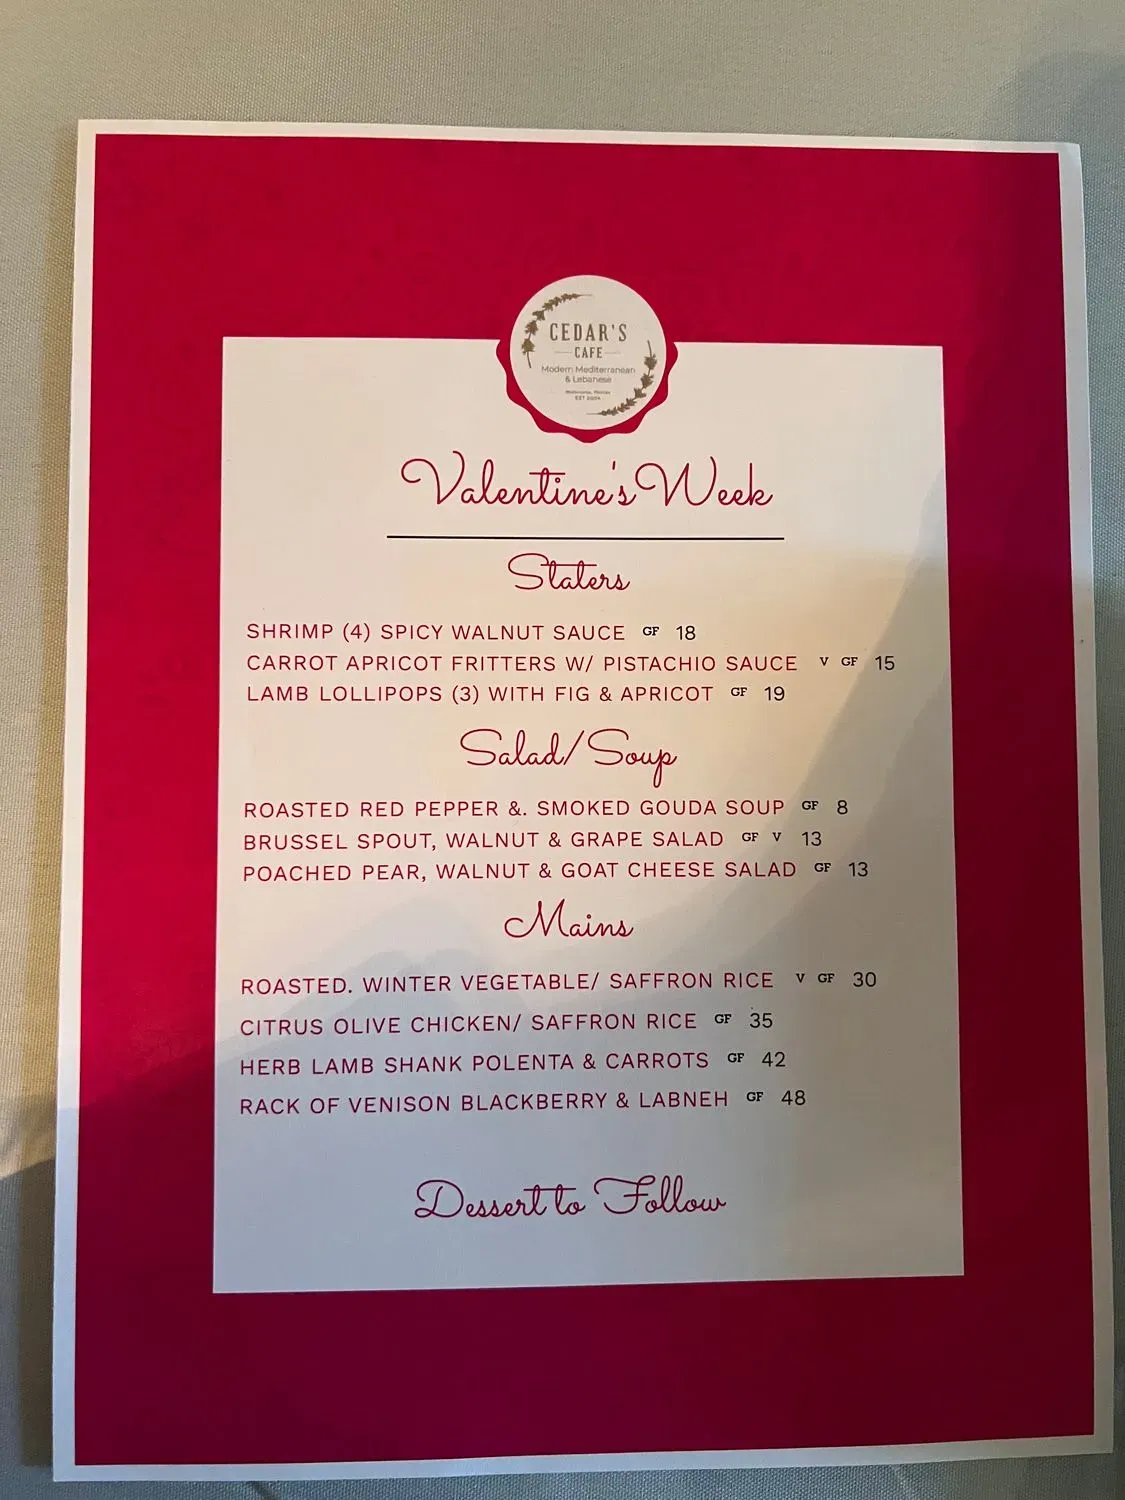 CEDAR'S
CAFE
Modern Mediterranean
& Lebanese
Melbourne, Florida
EST 2004
Valentine's Week
Staters
SHRIMP (4) SPICY WALNUT SAUCE GF 18
CARROT APRICOT FRITTERS W/ PISTACHIO SAUCE V GF 15
LAMB LOLLIPOPS (3) WITH FIG & APRICOT GF 19
Salad/Soup
ROASTED RED PEPPER &. SMOKED GOUDA SOUP GF 8
BRUSSEL SPOUT, WALNUT & GRAPE SALAD GF V 13
POACHED PEAR, WALNUT & GOAT CHEESE SALAD GF 13
Mains
ROASTED. WINTER VEGETABLE/ SAFFRON RICE V GF 30
CITRUS OLIVE CHICKEN/ SAFFRON RICE GF 35
HERB LAMB SHANK POLENTA & CARROTS GF 42
RACK OF VENISON BLACKBERRY & LABNEH GF 48
Dessert to Follow